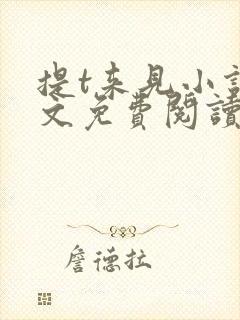 提t来见小說
文免費閱讀
詹德拉